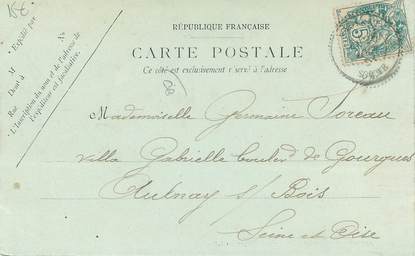 15€
RÉPUBLIQUE FRANÇAISE
CARTE POSTALE
Ce côté est exclusivement réservé à l'adresse
Nº
Expédié par
M
Demt à
Rue
L'Inscription du nom et de l'adresse de
l'expéditeur est facultative.
Mademoiselle Germaine Soreau
Villa Gabrielle boulev de Gourgues
Aulnay s/ Bois
Seine et Oise